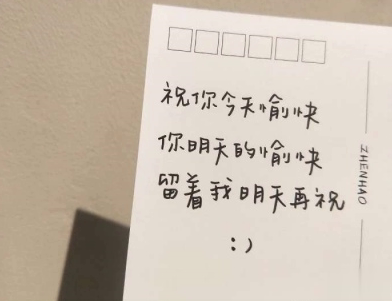 祝你今天愉快
你明天的愉快
留着我明天再祝
:)
ZHENHAO